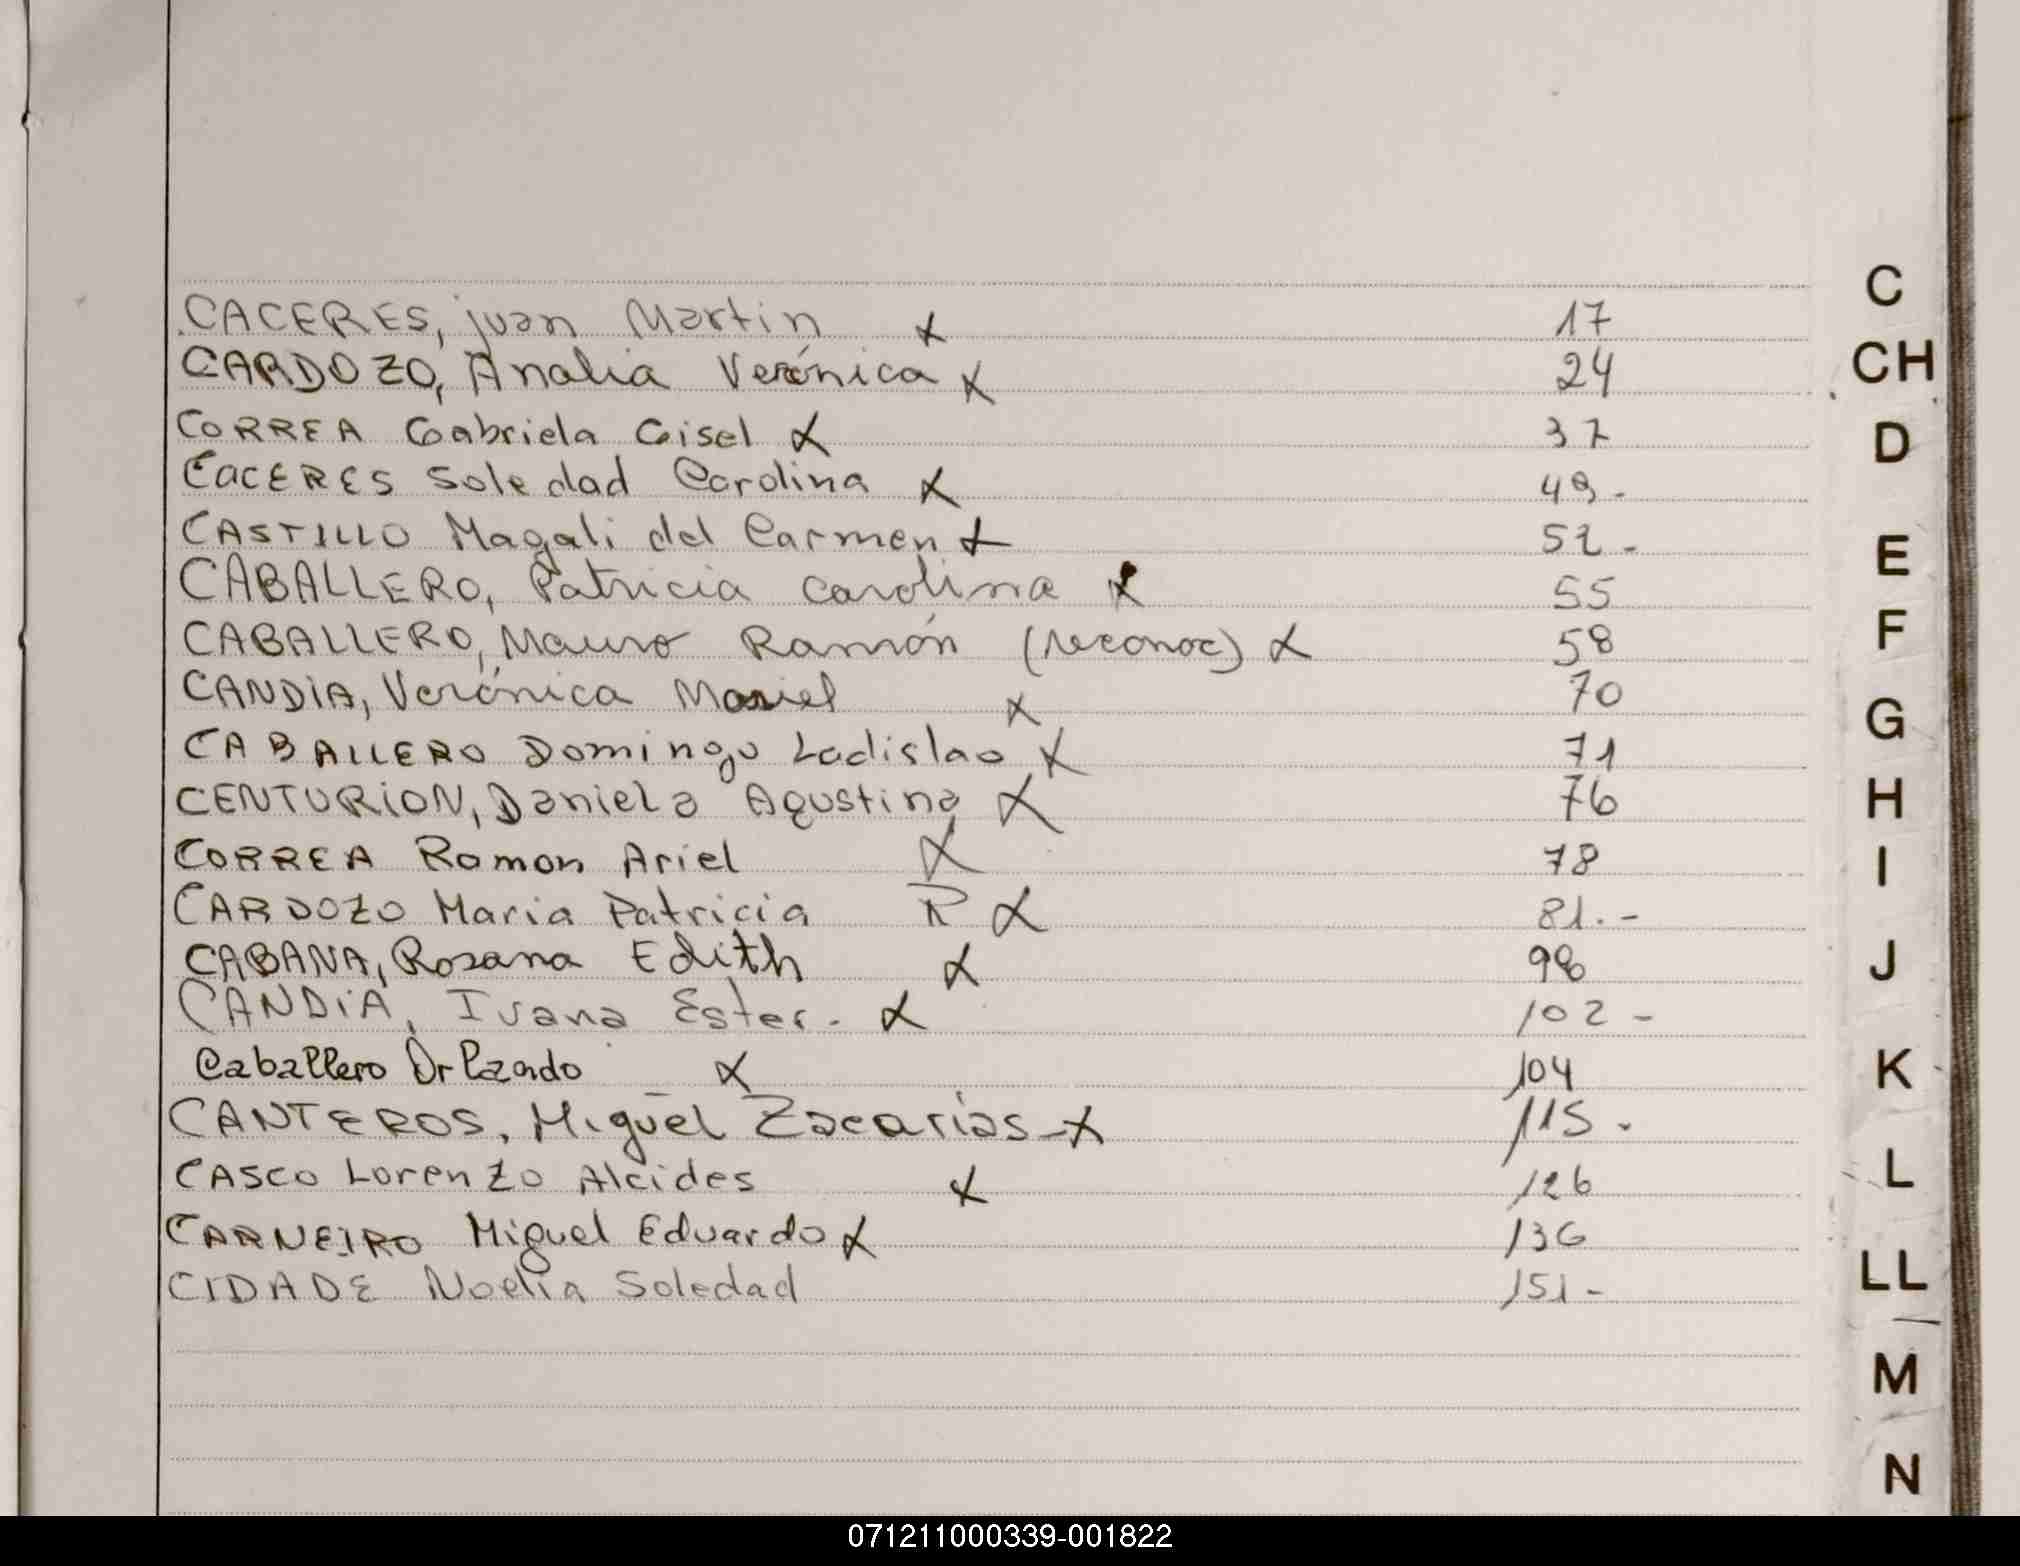 CACERES, juan Martin x 17
CARDOZO, Analia Verónica x 24
CORREA Gabriela Gisel x 37
CACERES Soledad Carolina x 49-
CASTILLO Magali del Carmen x 52-
CABALLERO, Patricia Carolina x 55
CABALLERO, Mauro Ramón (reconoc) x 58
CANDIA, Verónica Mariel x 70
CABALLERO Domingo Ladislao x 71
CENTURION, Daniela Agustina x 76
CORREA Ramon Ariel x 78
CARDOZO Maria Patricia R x 81.-
CABANA, Rosana Edith x 98
CANDIA, Ivana Ester. x 102-
Caballero Orlando x 104
CANTEROS, Miguel Zacarias-x 115.
CASCO Lorenzo Alcides x 126
CARNEIRO Miguel Eduardo x 136
CIDADE Noelia Soledad 151-
C
CH
D
E
F
G
H
I
J
K
L
LL
M
N
071211000339-001822